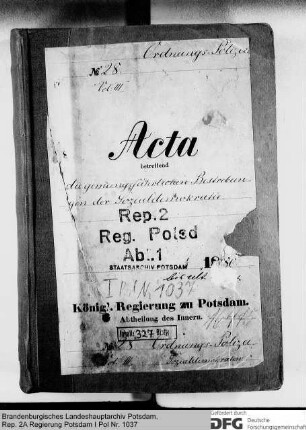 Ordnungs-Polizei
No 28.
Vol III
Acta
betreffend
die gemeingefährlichen Bestrebun
gen der Sozialdemokratie
Rep.2
Reg. Potsd
Abt.1
STAATSARCHIV POTSDAM
I Pol Nr. 1037
Königl. Regierung zu Potsdam.
Abtheilung des Innern.
327
Ordnungs-Polizei
Sozialdemokratie
Brandenburgisches Landeshauptarchiv Potsdam,
Rep. 2A Regierung Potsdam I Pol Nr. 1037
Gefördert durch
DFG Deutsche
Forschungsgemeinschaft